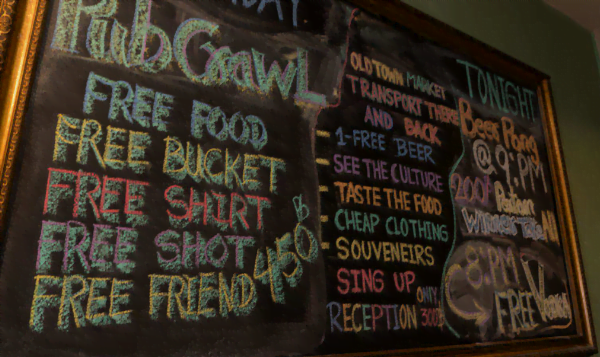 DAY.
Pub Crawl
FREE FOOD
FREE BUCKET
FREE SHIRT
FREE SHOT
FREE FRIEND
450฿
OLD TOWN MARKET
TRANSPORT THERE
AND BACK
1-FREE BEER
SEE THE CULTURE
TASTE THE FOOD
CHEAP CLOTHING
SOUVENEIRS
SING UP
RECEPTION
ONLY
300฿
TONIGHT
Beer Pong
@ 9:PM
200฿
WINNER Takes All
8:PM
FREE